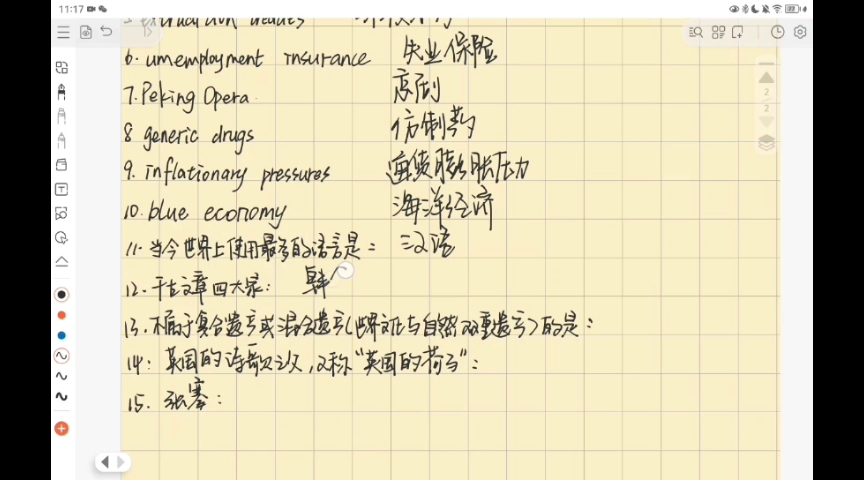 11:17
6. umemployment insurance 失业保险
7. Peking Opera 京剧
8 generic drugs 仿制药
9. inflationary pressures 通货膨胀压力
10. blue economy 海洋经济
11. 当今世界上使用最多的语言是: 汉语
12. 千古文章四大家: 韩
13. 不属于复合遗产或混合遗产(世界文化与自然双重遗产)的是:
14: 英国的诗歌之父,又称"英国的荷马":
15. 张骞: